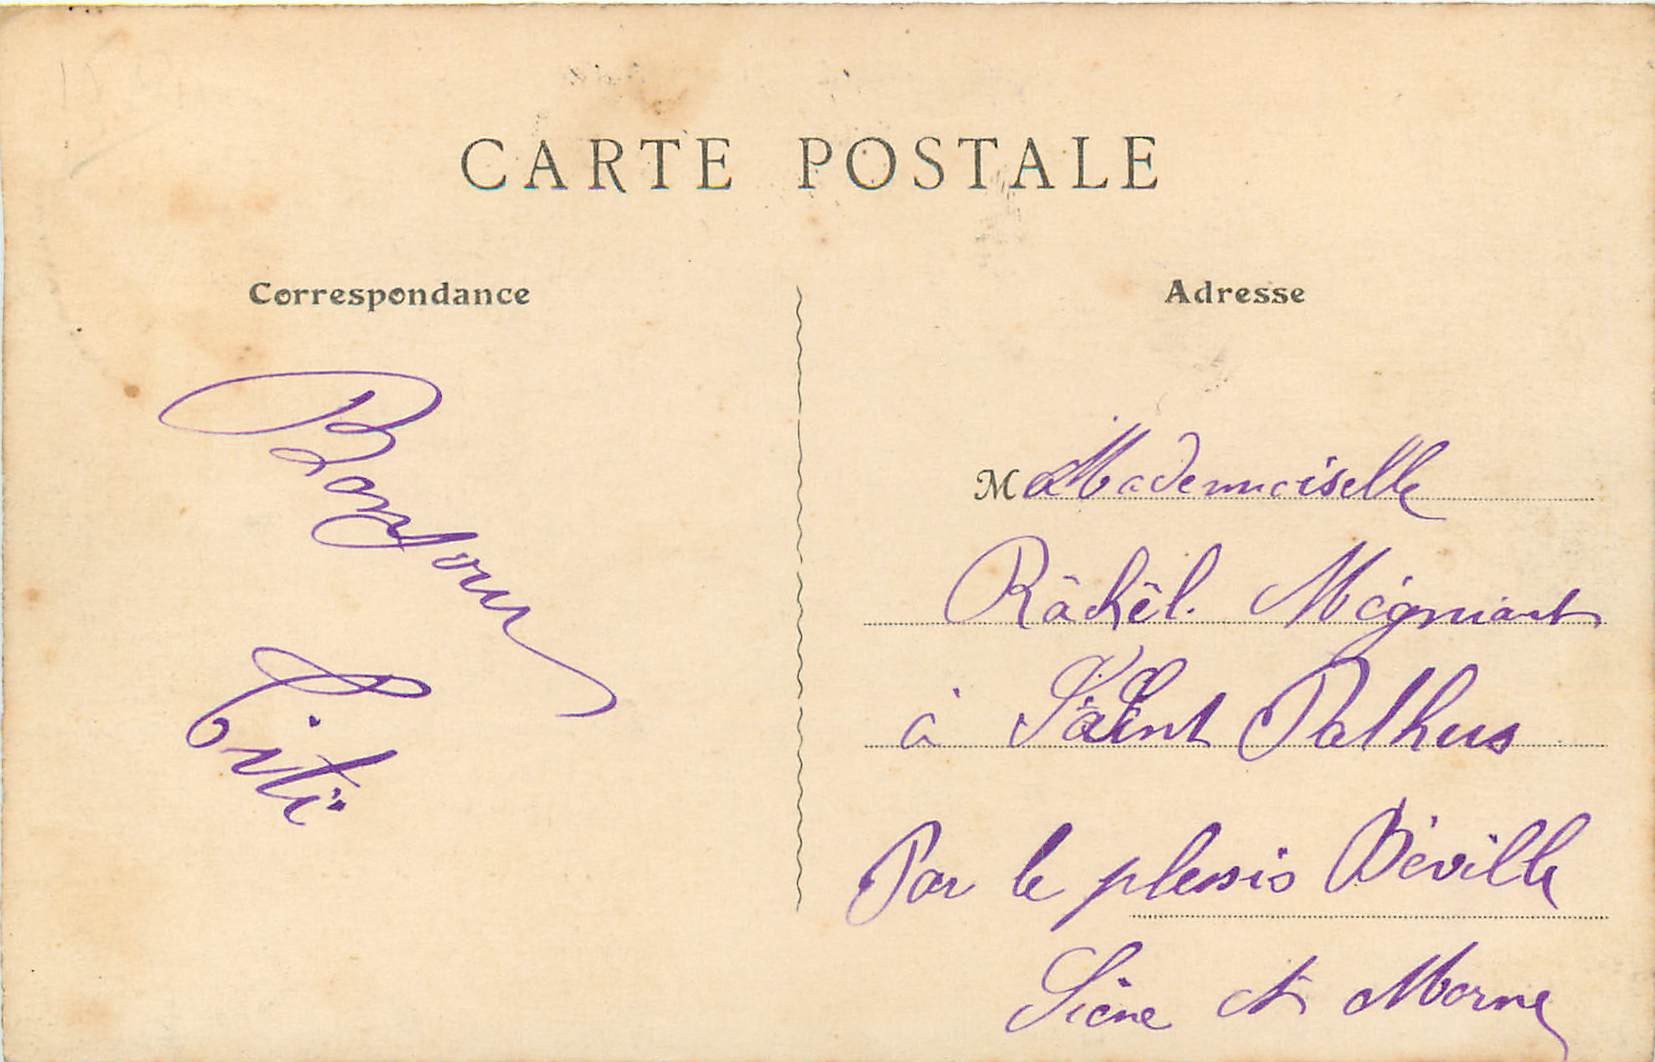 CARTE POSTALE
Correspondance
Adresse
Bonjour
Titi
M Mademoiselle
Râchêl. Mégniart
à Saint Pathus
Par le plessis Béville
Siene et Marne